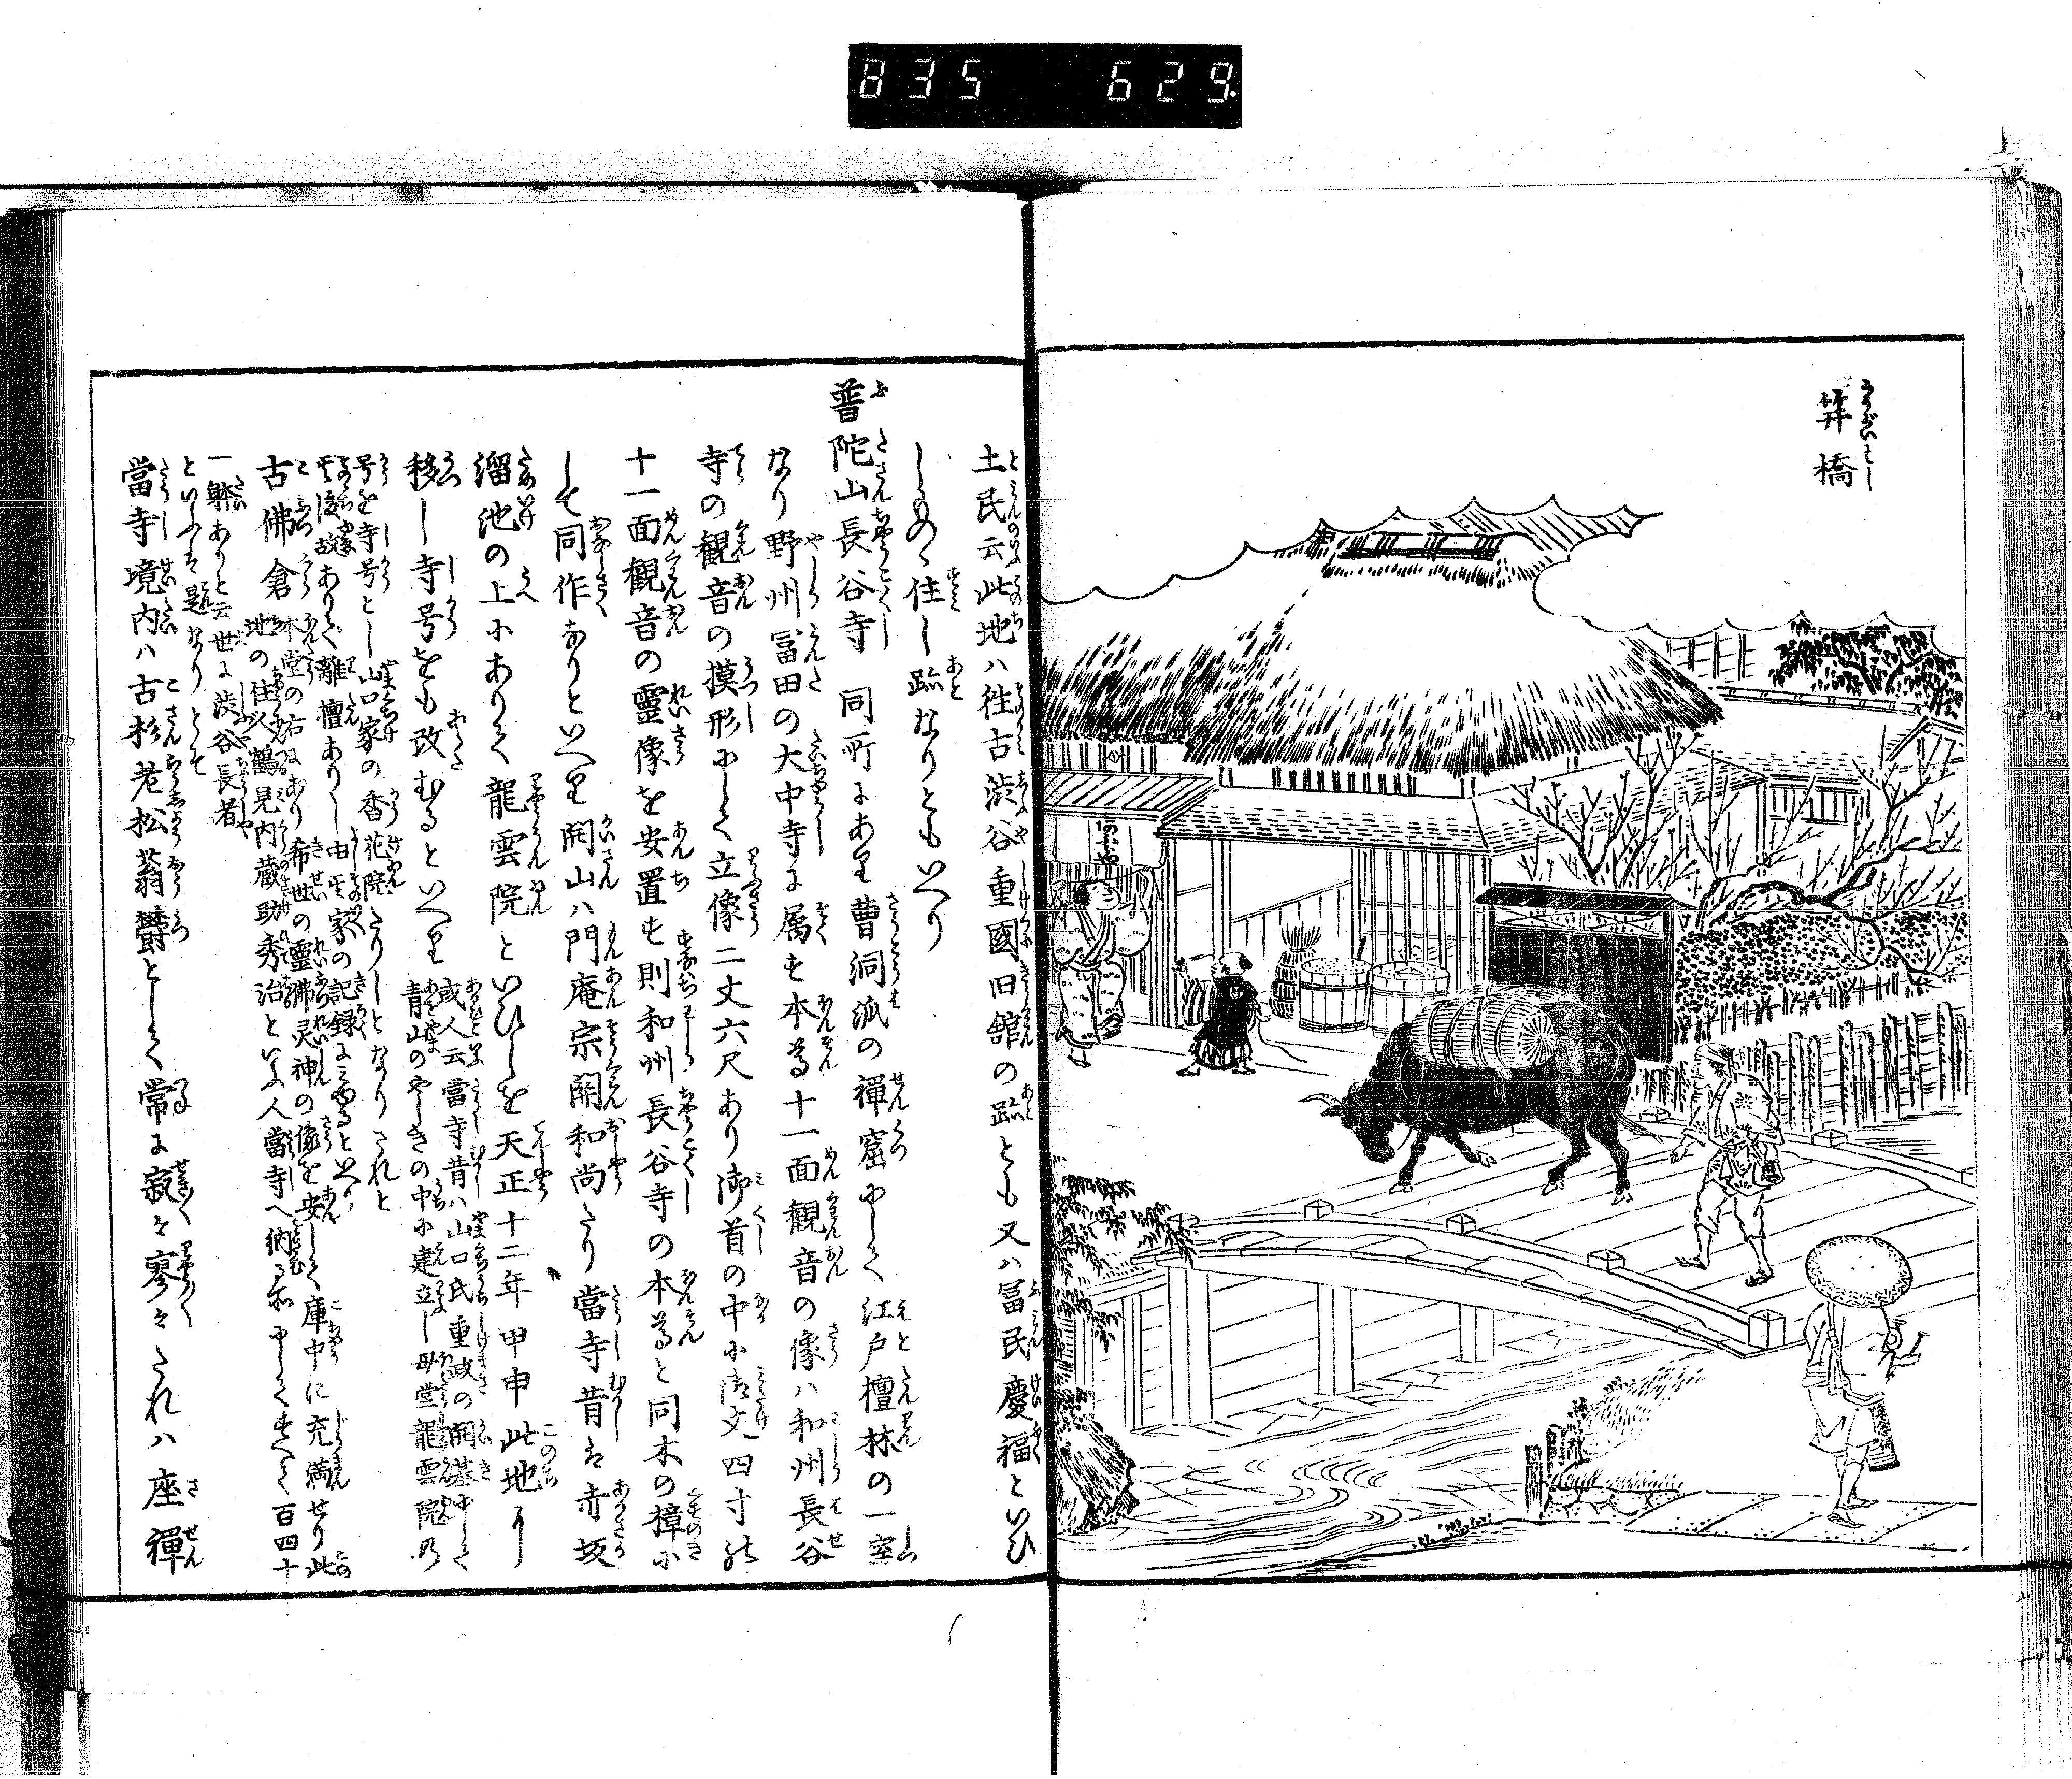 835 629
笄橋
土民云此地ハ往古渋谷重國旧舘の跡とも又ハ冨民慶福といひ
しものゝ住し跡なりともいへり
普陀山長谷寺 同所にあり曹洞派の禅窟にして江戸檀林の一室
なり野州冨田の大中寺に属す本尊十一面観音の像ハ和州長谷
寺の観音の摸形にして立像二丈六尺あり御首の中に御丈四寸の
十一面観音の靈像を安置す則和州長谷寺の本尊と同木の樟に
して同作なりといへり開山ハ門庵宗關和尚たり當寺昔は赤坂
溜池の上にありて龍雲院といひしを天正十二年甲申此地に
移し寺号をも改むるといへり
或人云當寺昔ハ山口氏重政の開基にして
青山のやしきの中に建立し母堂龍雲院乃
号を寺号とし山口家の香花院たりしとなりされと
其後故ありて離檀ありし由其家の記録にみゆるといへり
古佛倉
本堂の右にあり希世の靈佛灵神の像を安して庫中に充満せり此
地の住人鶴見内蔵助秀治といふ人當寺へ納る所にしてすへて百四十
一躰ありと云世に渋谷長者
といふは是なりとそ
當寺境内ハ古杉老松蓊欝として常に寂々寥々たれハ座禅